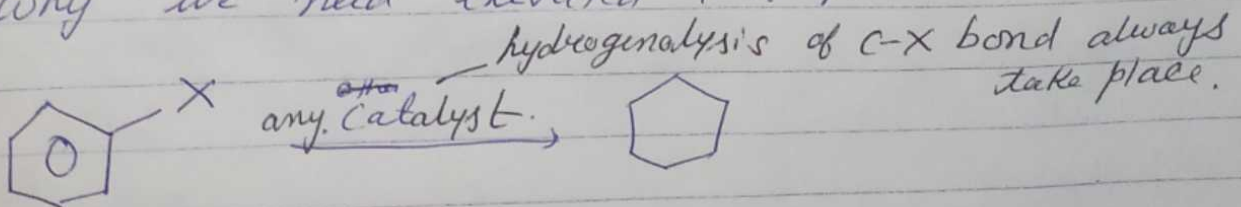 why we need
hydrogenalysis of C-X bond always
take place.
X
any. Catalyst.